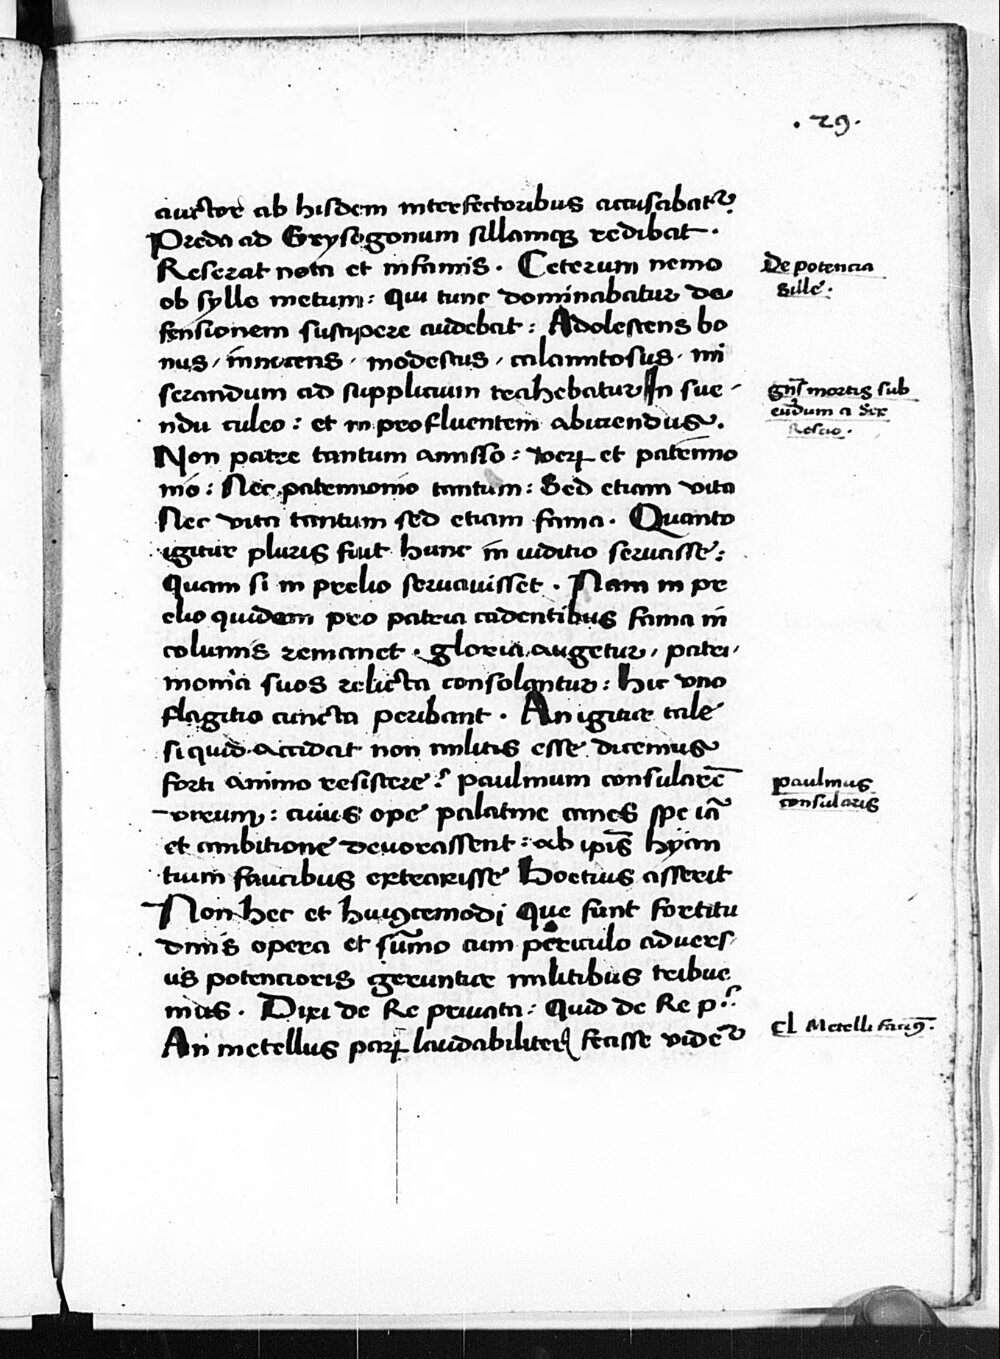 . 29.
auctor ab hisdem interfectoribus accusabatr̃
Preda ad Grysogonum sillamqꝫ redibat.
Res erat nota et infamis. Ceterum nemo
ob sylle metum: Qui tunc dominabatur de
fensionem suscipere audebat: Adolescens bo
nus, innocens, modestus, calamitosus, mi
serandum ad supplicium trahebatur In sue-
ndu culeo: et in profluentem abiciendus.
Non patre tantum amisso: verꝝ et patrimo
nio: Nec patrimonio tantum: Sed etiam vita
Nec vita tantum sed etiam fama. Quanto
igitur pluris fuit hunc in iuditio servasse:
Quam si in prelio servavisset. Nam in pre
elio quidem pro patria cadentibus fama in
columis remanet. gloria augetur, patri,
monia suos relicta consolantur: hic uno
flagitio cuncta peribant. An igitur tale
si quid accidat non militis esse dicemus
forti animo resistere? paulinum consularē
virum: cuius ope palatine canes spe iā
et ambitione devorassent: ab ipīs hyan
tium faucibus extraxisse Boetius asserit
Non hec et huiꝰcemodi que sunt fortitu
dinis opera et sūmo cum periculo advers
us potencioris geruntur militibus tribue
mus. Dixi de Re privata: Quid de Re p.?
An metellus parꝝ laudabiliter fecisse vider̃
De potencia
sille.
gn̄s mortis sub
eūdum a sex
Roscio.
paulinus
consularis
Cl Metelli facinꝰ.